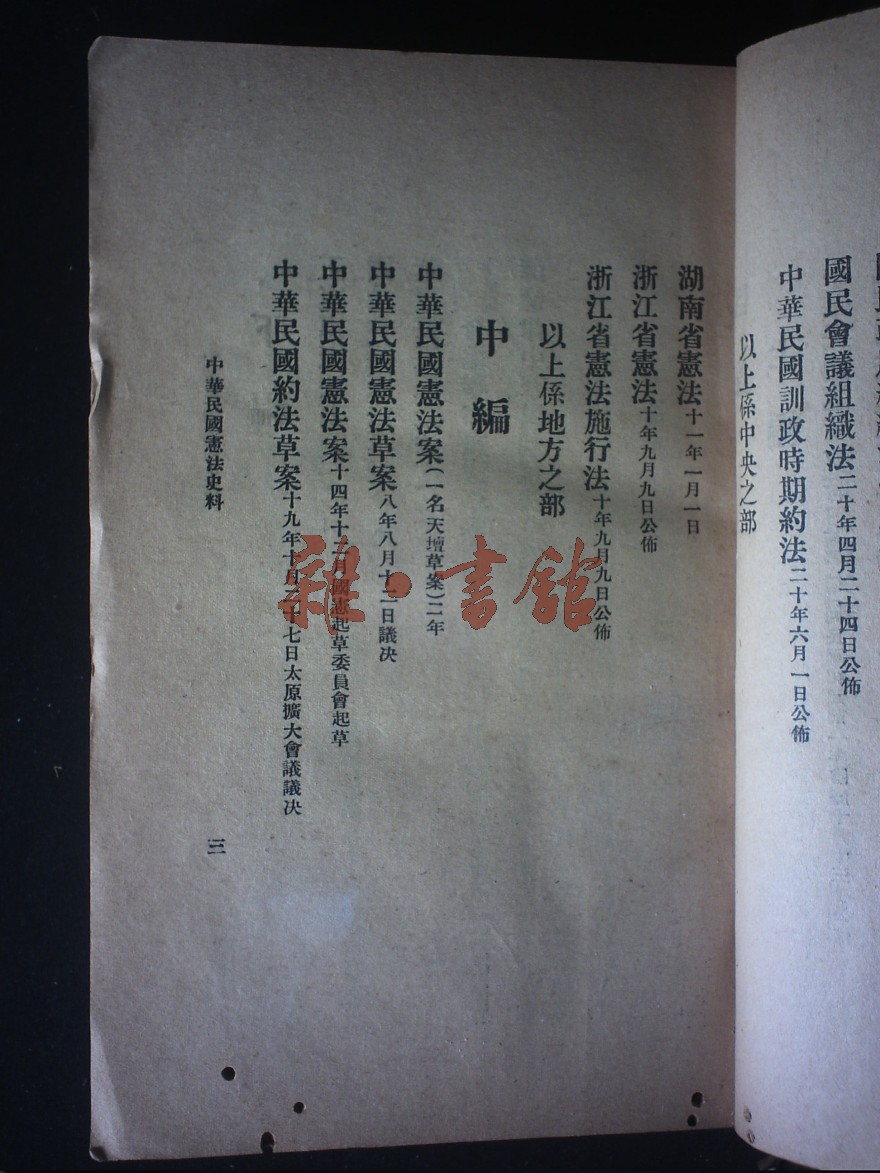 國民會議組織法二十年四月二十四日公佈
中華民國訓政時期約法二十年六月一日公佈
以上係中央之部
湖南省憲法十一年一月一日
浙江省憲法十年九月九日公佈
浙江省憲法施行法十年九月九日公佈
以上係地方之部
中編
中華民國憲法案(一名天壇草案)二年
中華民國憲法草案八年八月十二日議決
中華民國憲法案十四年十二月國憲起草委員會起草
中華民國約法草案十九年十月二十七日太原擴大會議議決
中華民國憲法史料
三
雜·書館